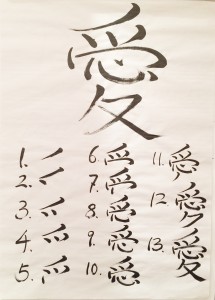 愛
1.
2.
3.
4.
5.
6.
7.
8.
9.
10.
11.
12
13. 愛